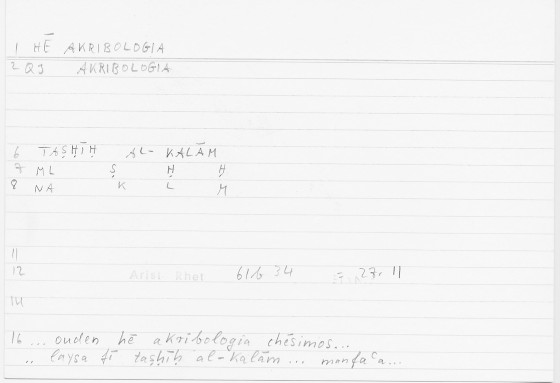 1 HĒ AKRIBOLOGIA
2 QJ AKRIBOLOGIA
6 TAṢḤĪḤ AL-KALĀM
7 ML Ṣ Ḥ Ḥ
8 NA K L M
11
12 Arist Rhet 61b 34 = 27, 11
14
16 ... ouden hē akribologia chēsimos...
.. laysa fī taṣḥīḥ al-Kalām ... manfaʿa...